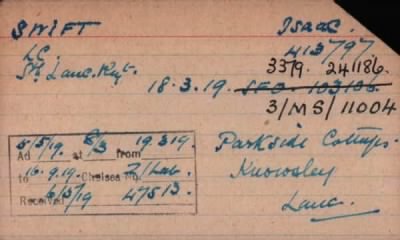 SWIFT Isaac.
LC. 413797
Sth. Lanc. Rgt. 3379. 241186.
18.3.19. SFO - 103106
3/MS/11004
5/5/19 8/3 19.3.19.
Ad at from
to 16.9.19. Chelsea No. 7/Lab.
Received 6/5/19 47513.
Parkside Cottages.
Knowsley
Lanc.